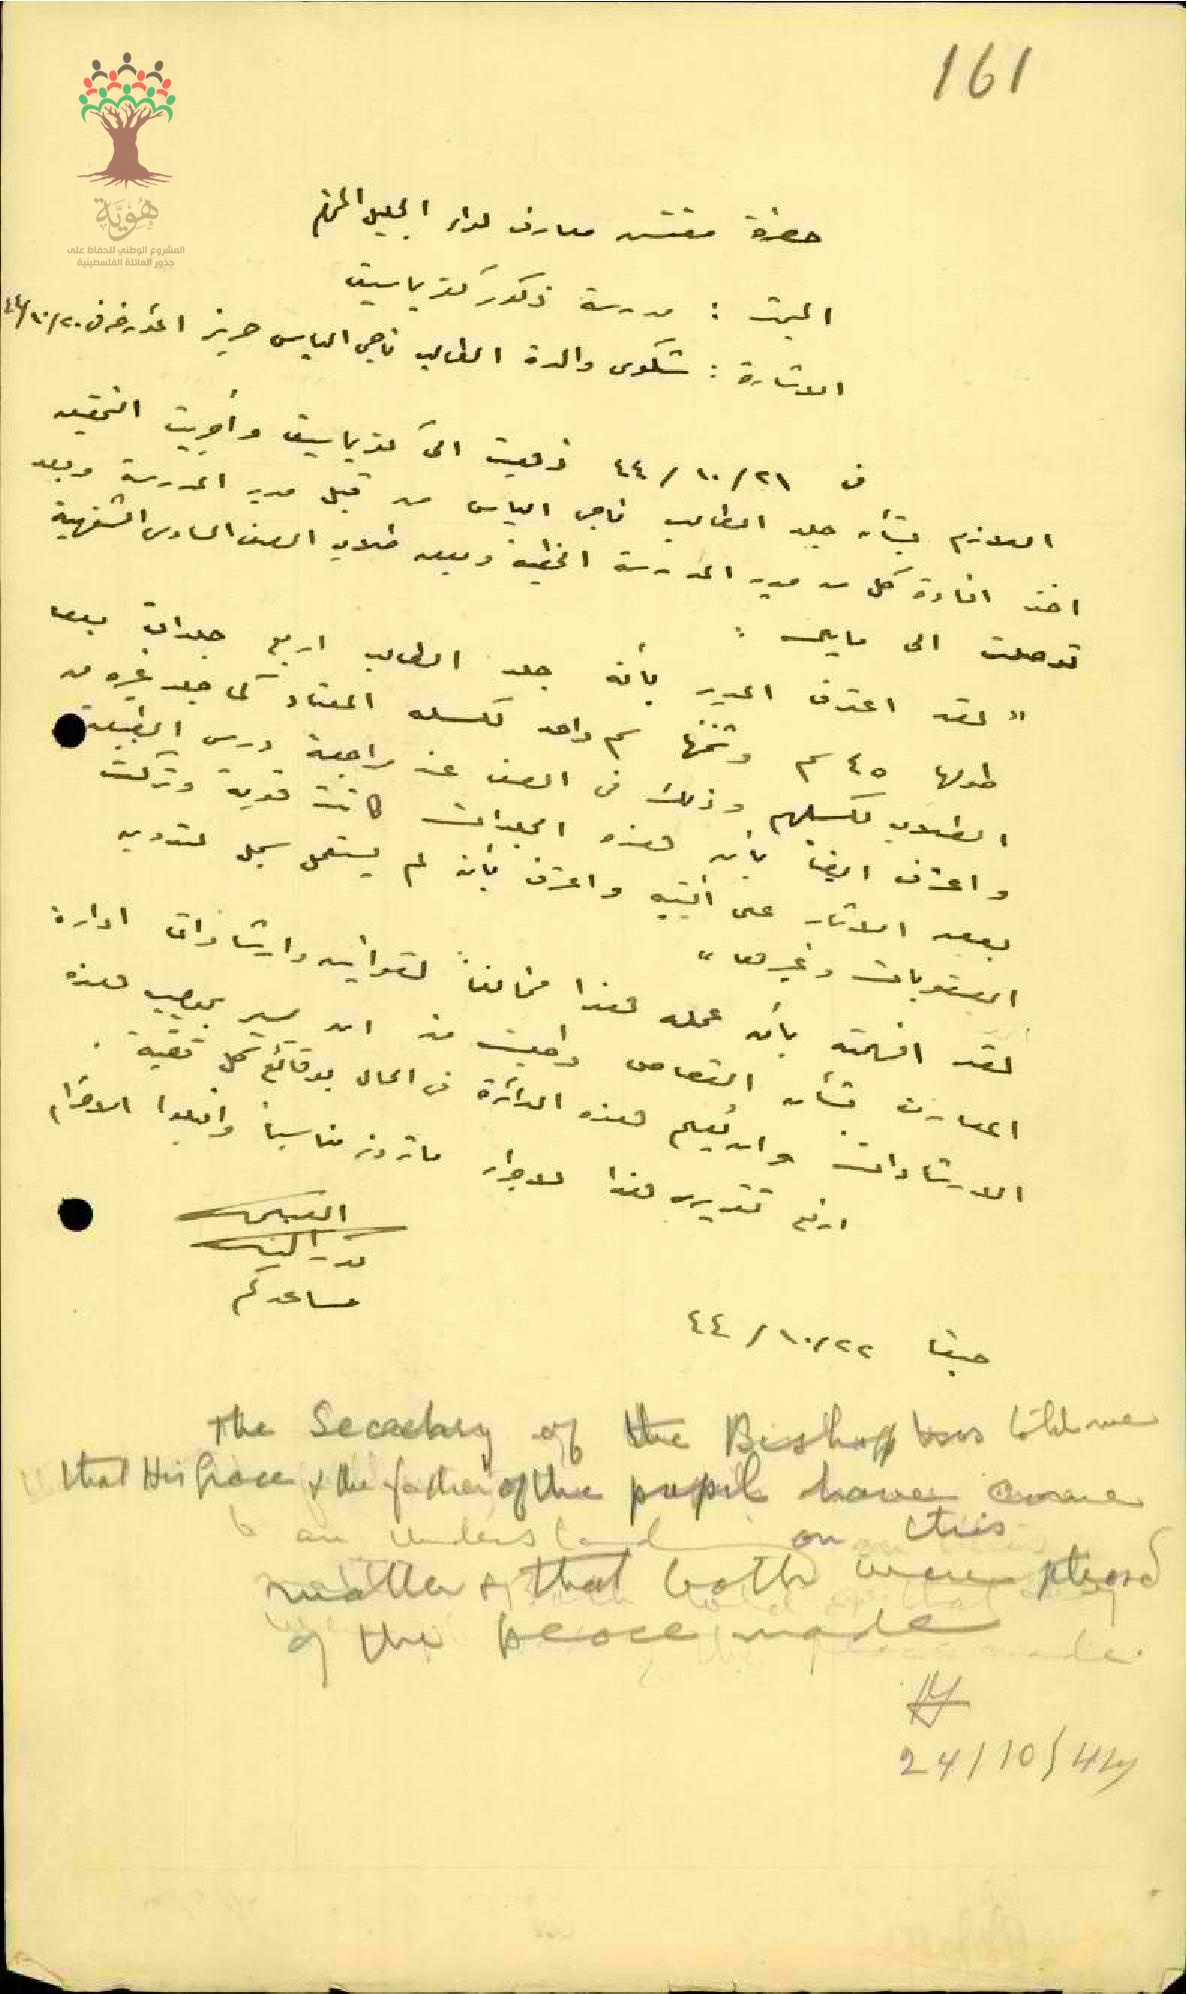 161
هُوِيَّة
المشروع الوطني للحفاظ على
جذور العائلة الفلسطينية
حضرة مفتش معارف لواء الجليل المحترم
المبحث : مدرسة ذكور كفر ياسيف
الاشارة : شكوى والدة الطالب ناجي الياس المؤرخة في ٢٠/١٠/٤٤
في ٢١/١٠/٤٤ ذهبت الى كفر ياسيف وأجريت التحقيق
اللازم بشأن جلد الطالب ناجي الياس من قبل مدير المدرسة وبعد
اخذ افادة كل من مدير المدرسة الخطية وبعض طلاب الصف السادس الشفهية
توصلت الى ما يلي :
" لقد اعترف المدير بأنه جلد الطالب اربع جلدات بعصا
طولها ٤٥ سم وثخنها سم واحد لكسله المعتاد كما جلد غيره من
الطلاب لكسلهم وذلك في الصف عند مراجعة درس الطبيعة
واعترف ايضاً بأن هذه الجلدات كانت قوية وتركت
بعض الاثار على أليتيه واعترف بأنه لم يستعمل سجل لتدوين
العقوبات وغيرها "
لقد افهمته بأن عمله هذا مخالفاً لقوانين وارشادات ادارة
المعارف بشأن القصاص وطلبت منه ان يسير بموجب هذه
الارشادات وان يُعلم هذه الدائرة في الحال بوقائع كل قضية .
ارفع تقريري هذا لاجراء ما ترونه مناسباً واقبلوا الاحترام
مساعدكم
حيفا ٢٢/١٠/٤٤
The Secretary of the Bishop has told me
that His Grace & the father of the pupil have come
to an understanding on this
matter & that both were pleased
of the peace made
24/10/44